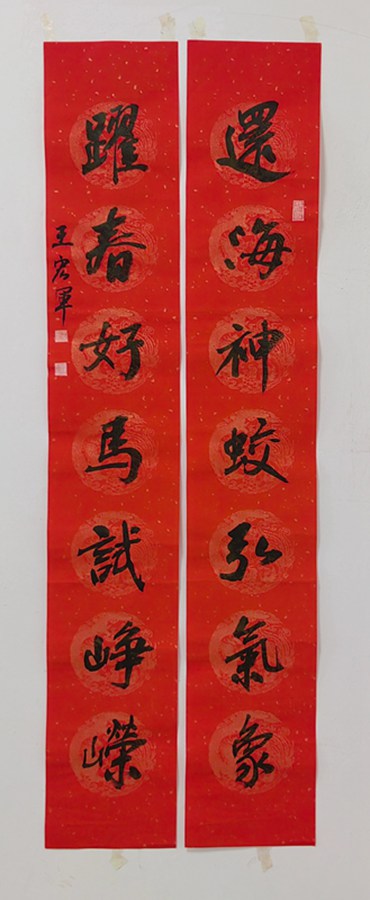 還海神蛟弘氣象
躍春好馬試崢嶸
王宏軍